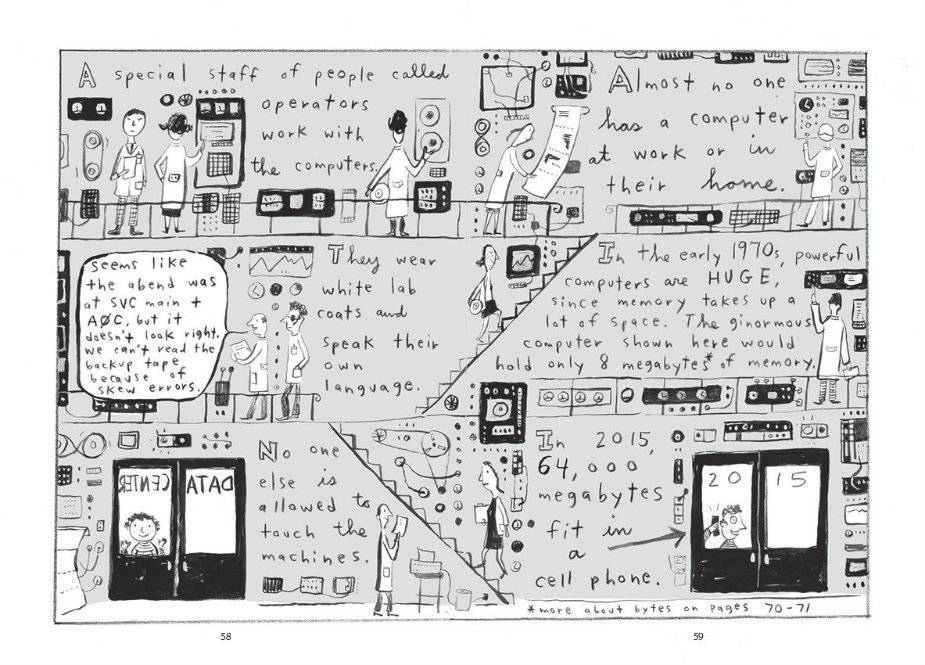 A special staff of people called
operators
work with
the computers.
Almost no one
has a computer
at work or in
their home.
seems like
the abend was
at SVC main +
AØC, but it
doesn't look right.
we can't read the
backup tape
because of
skew errors.
They wear
white lab
coats and
speak their
own
language.
In the early 1970s, powerful
computers are HUGE,
since memory takes up a
lot of space. The ginormous
computer shown here would
hold only 8 megabytes* of memory.
DATA CENTER
No one
else is
allowed to
touch the
machines.
In 2015,
64,000
megabytes
fit in
a
cell phone.
20 15
*more about bytes on pages 70-71
58
59